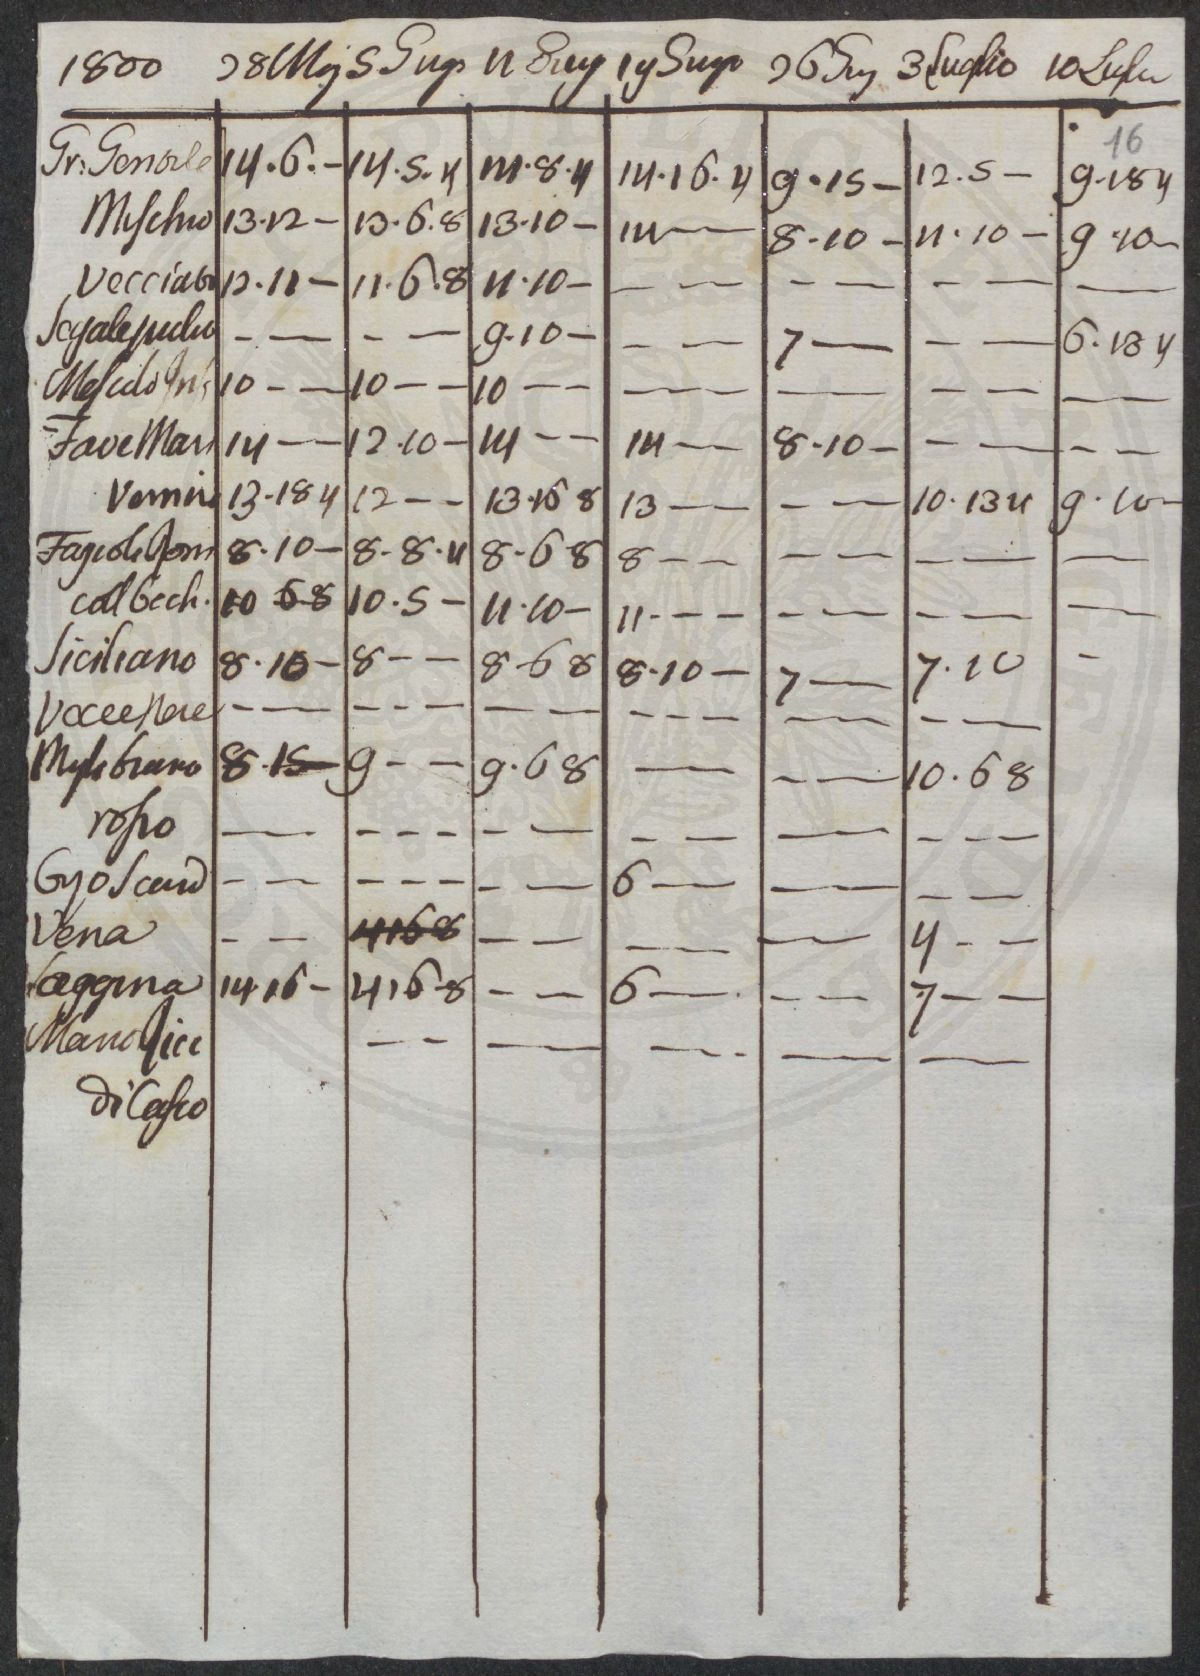 1800 28 Mag 5 Giug 11 Giug 19 Giug 26 Giug 3 Luglio 10 Luglio
16
Gr: Gentile 14.6.- 14.5.4 14.8.4 14.16.4 9.15- 12.5- 9.18 4
Mischio 13.12- 13.6.8 13.10- 14 — 8-10- 11.10- 9.10-
Vecciato 12.11- 11.6.8 11.10- - - - - - - - -
- - - - 9.10- - - - 7 — - - - 6.13 4
10 - - 10 - - 10 - - — — - - - — —
Fave 14 — 12.10- 14 - - 14 - - 8-10- - - - - - -
13-18 4 12 - - 13.16 8 13 - - - - - 10.13 4 9.10-
8.10- 8-8.4 8-6 8 8 - - - - - - - - —
10 6 8 10.5- 11.10- 11 - - - - - - - - - —
Siciliano 8.10- 8 - - 8-6 8 8.10- 7 — 7.10 -
- - - - - - - - - - - - - - - - -
8.15- 9 - - 9.6 8 — - - - 10.6 8
rosso — - - - - - - - — - - -
- - - - - - - - 6 — — - - -
Vena - - 4 16 8 - - - - — 4 - -
Saggina 14 16- 4 16-8 - - - 6 — - - - 7 - -
- - — - - - — —